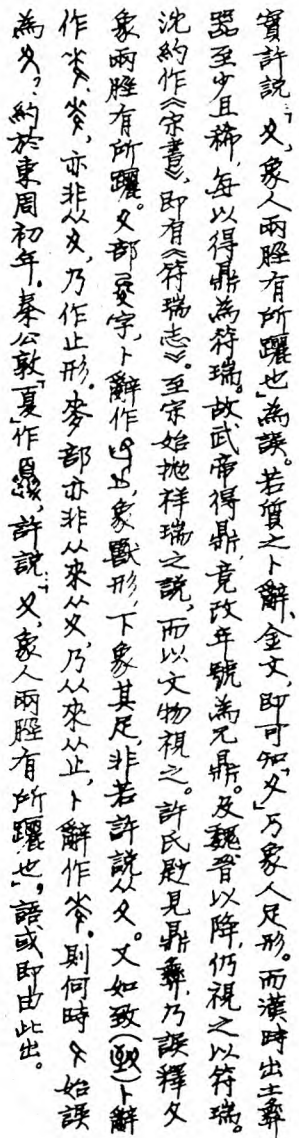 實許説：「夊，象人兩脛有所躧也」為誤。若質之卜辭、金文，即可知「夊」乃象人足形。而漢時出土彝
器至少且稀，每以得鼎為符瑞。故武帝得鼎，竟改年號為元鼎。及魏晉以降，仍視之以符瑞。
沈約作《宋書》，即有《符瑞志》。至宋始拋祥瑞之説，而以文物視之。許氏尠見鼎彝，乃誤釋夊
象兩脛有所躧。夊部夒字，卜辭作 上象獸形，下象其足，非若許説从夊。又如致（𦤶）卜辭
作 亦非从夊，乃作止形。麥部亦非从來从夊，乃从來从止，卜辭作 則何時夊始誤
為夊？約於東周初年。秦公敦「夏」作 許説：「夊，象人兩脛有所躧也」，語或即由此出。